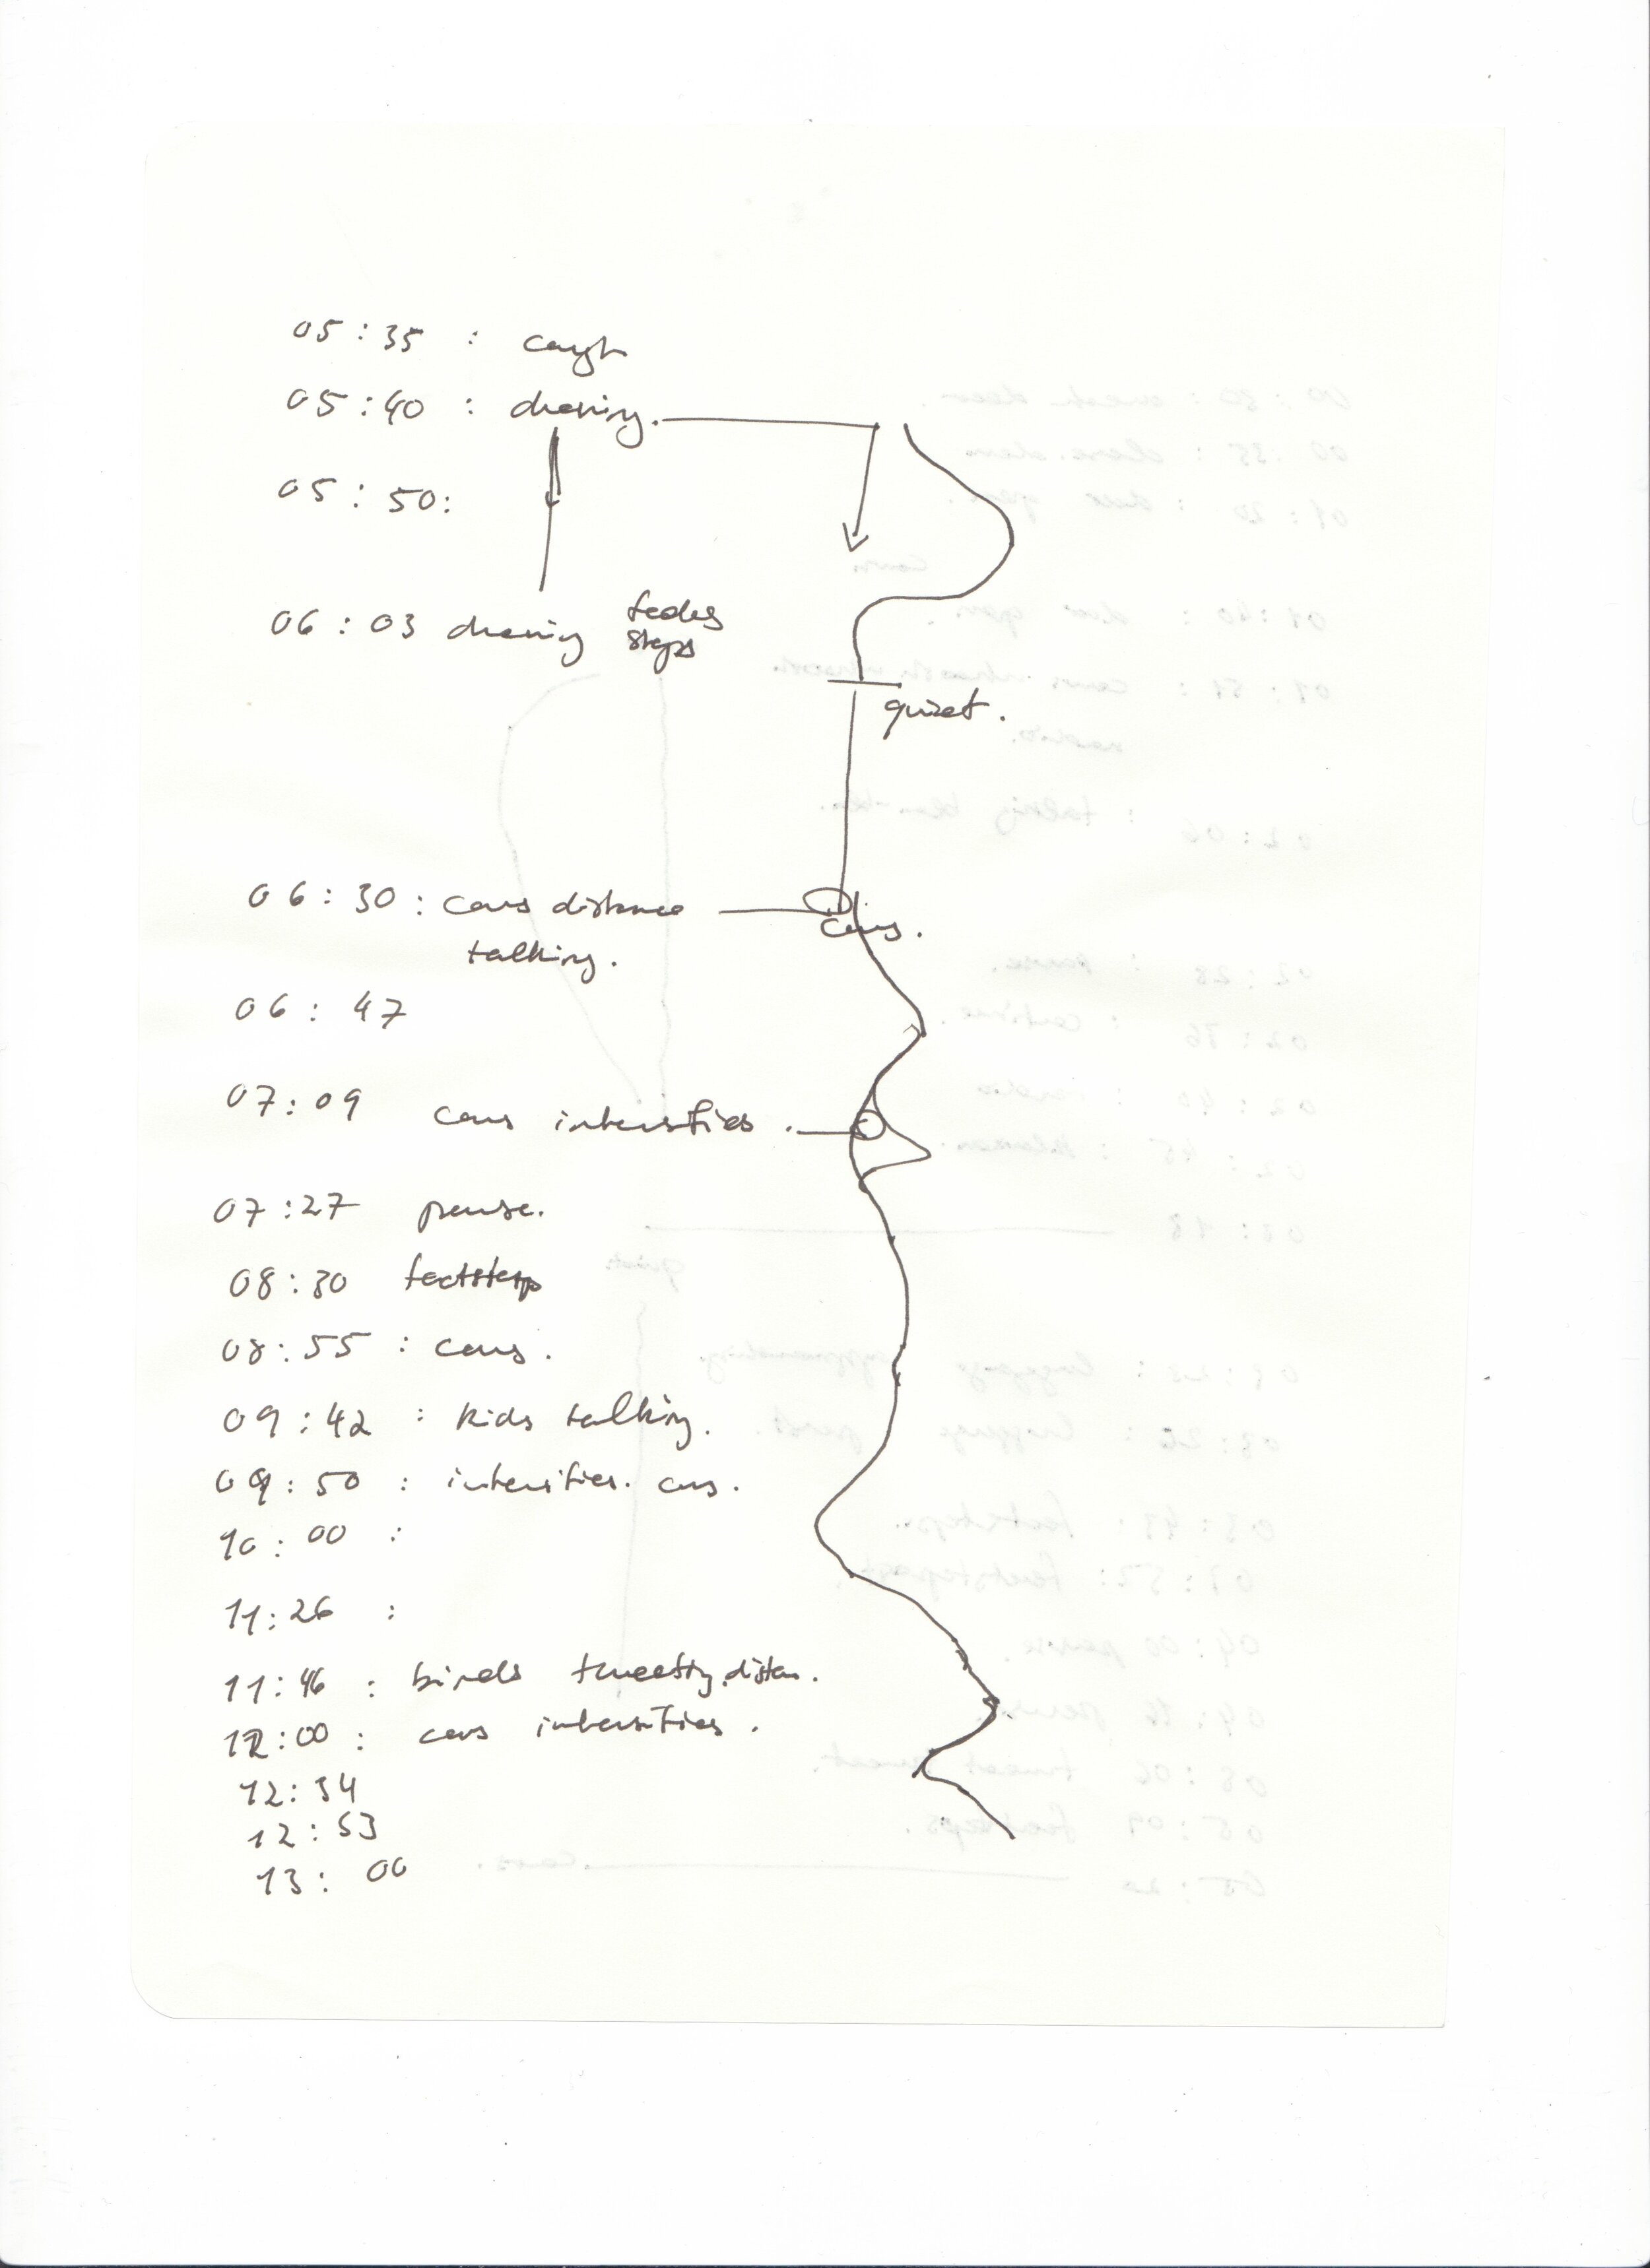 05:35 : cough
05:40 :
05:50:
06:03 fades
steps
quiet.
06:30: cars distance
cars.
talking.
06:47
07:09 cars intensities.
07:27 pause.
08:30 footsteps
08:55 : cars.
09:42 : kids talking.
09:50 : intensities. cars.
10:00 :
11:26 :
11:46 : birds distan.
12:00 : cars intensities.
12:34
12:53
13:00